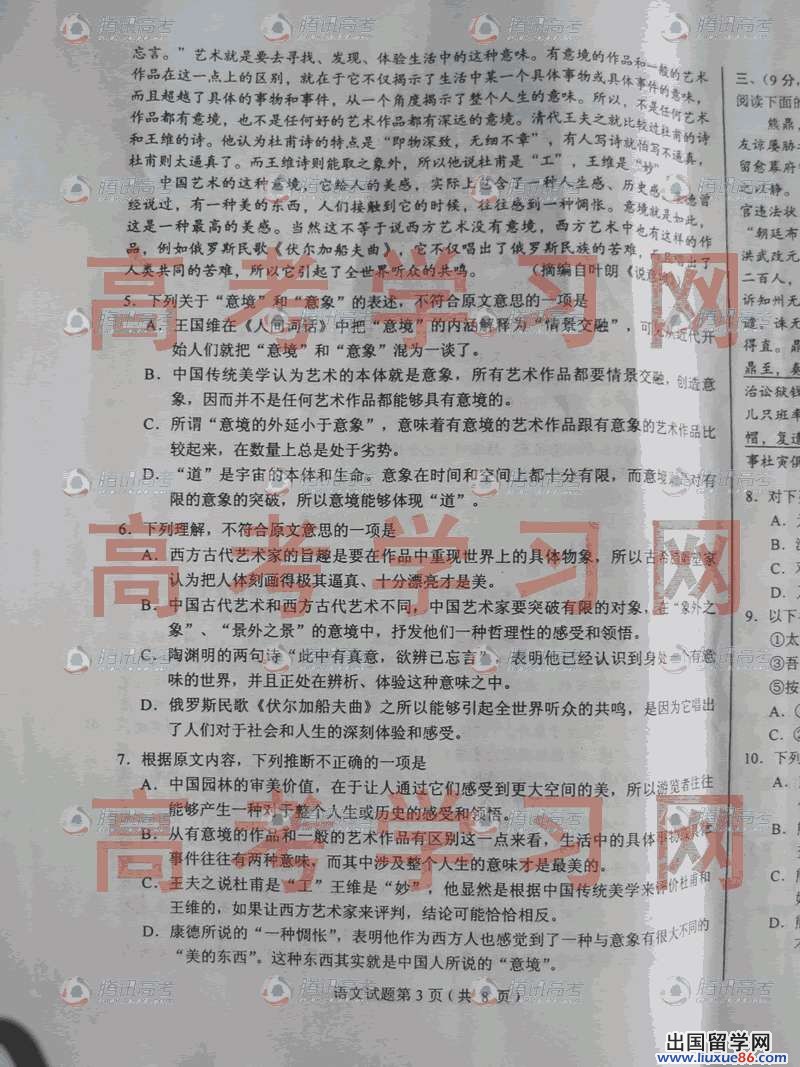 忘言。”艺术就是要去寻找、发现、体验生活中的这种意味。有意境的作品和一般的艺术
作品在这一点上的区别，就在于它不仅揭示了生活中某一个具体事物或具体事件的意味，
而且超越了具体的事物和事件，从一个角度揭示了整个人生的意味。所以，不是任何艺术
作品都有意境，也不是任何好的艺术作品都有深远的意境。清代王夫之就比较过杜甫的诗
和王维的诗。他认为杜甫诗的特点是“即物深致，无细不章”，有人写诗就怕写不逼真，
杜甫则太逼真了。而王维诗则能取之象外，所以他说杜甫是“工”，王维是“妙”
中国艺术的这种意境，它给人的美感，实际上包含了一种人生感、历史感。康德曾
经说过，有一种美的东西，人们接触到它的时候，往往感到一种惆怅。意境就是如此，
这是一种最高的美感。当然这不等于说西方艺术没有意境，西方艺术中也有这样的作
品，例如俄罗斯民歌《伏尔加船夫曲》，它不仅唱出了俄罗斯民族的苦难，唱出了
人类共同的苦难，所以它引起了全世界听众的共鸣。（摘编自叶朗《说意境》
5．下列关于“意境”和“意象”的表述，不符合原文意思的一项是
A．王国维在《人间词话》中把“意境”的内涵解释为“情景交融”，可见从近代开
始人们就把“意境”和“意象”混为一谈了。
B．中国传统美学认为艺术的本体就是意象，所有艺术作品都要情景交融，创造意
象，因而并不是任何艺术作品都能够具有意境的。
C．所谓“意境的外延小于意象”，意味着有意境的艺术作品跟有意象的艺术作品比
较起来，在数量上总是处于劣势。
D．“道”是宇宙的本体和生命。意象在时间和空间上都十分有限，而意境是对有
限的意象的突破，所以意境能够体现“道”。
6．下列理解，不符合原文意思的一项是
A．西方古代艺术家的旨趣是要在作品中重现世界上的具体物象，所以古希腊雕塑家
认为把人体刻画得极其逼真、十分漂亮才是美。
B．中国古代艺术和西方古代艺术不同，中国艺术家要突破有限的对象，在“象外之
象”、“景外之景”的意境中，抒发他们一种哲理性的感受和领悟。
C．陶渊明的两句诗“此中有真意，欲辨已忘言”，表明他已经认识到身处一个有意
味的世界，并且正处在辨析、体验这种意味之中。
D．俄罗斯民歌《伏尔加船夫曲》之所以能够引起全世界听众的共鸣，是因为它唱出
了人们对于社会和人生的深刻体验和感受。
7．根据原文内容，下列推断不正确的一项是
A．中国园林的审美价值，在于让人通过它们感受到更大空间的美，所以游览者往往
能够产生一种对于整个人生或历史的感受和领悟。
B．从有意境的作品和一般的艺术作品有区别这一点来看，生活中的具体事物或具体
事件往往有两种意味，而其中涉及整个人生的意味才是最美的。
C．王夫之说杜甫是“工”王维是“妙”，他显然是根据中国传统美学来评价杜甫和
王维的，如果让西方艺术家来评判，结论可能恰恰相反。
D．康德所说的“一种惆怅”，表明他作为西方人也感觉到了一种与意象有很大不同的
“美的东西”。这种东西其实就是中国人所说的“意境”。
语文试题第3页（共 8 页）
三、（9分，
阅读下面的
熊鼎
友谅屡胁
留愈幕府
之以静。
官违法状
“朝廷布
洪武改元
二百人，
诉知州无
遣，诛无
得直。鼎
鼎至，奏
治讼狱钱
儿只班率
帽，复遣
事杜寅俱
8．对下
A．
B．
C．
D．
9．以下
①太
③吾
⑤按
A．①
C．②
10．下列
A．
B．
C．
D．
腾讯高考
高考学习网
高考学习网
高考学习网
出国留学网
www.liuxue86.com